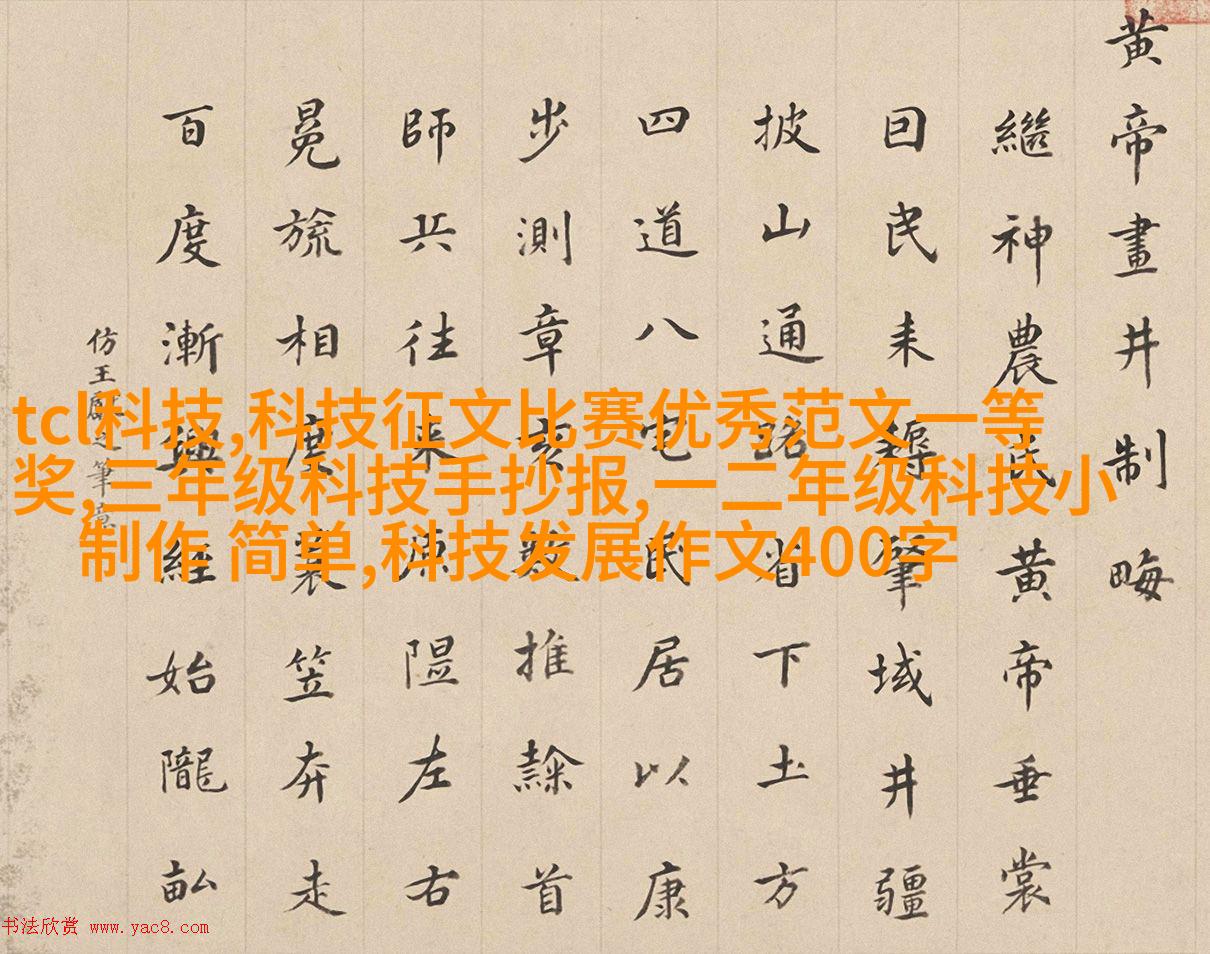 黃帝畫井制畮
繼神農氏黃帝垂裳
囙民耒耨肇域井疆
披山通路省下土方
四道八宅民居以康
步測章亥數推隸首
師兵往来隰左右
冕旒相度蓑笠奔走
百度漸興經始隴畝
仿王獻之筆意
tcl科技,科技征文比赛优秀范文一等
奖,三年级科技手抄报,一二年级科技小
制作 简单,科技发展作文400字
书法欣赏 www.yac8.com